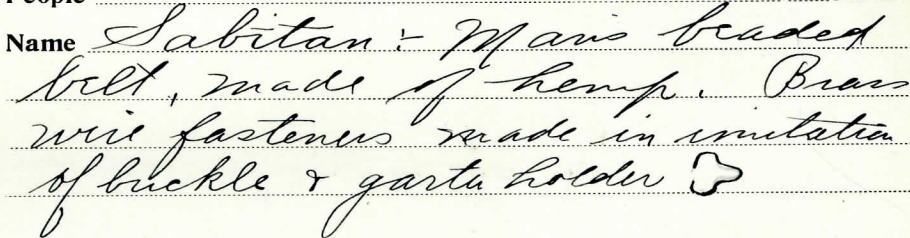 People
Name Sabitan:- Man's beaded
belt, made of hemp. Brass
wire fasteners made in imitation
of buckle & garter holder